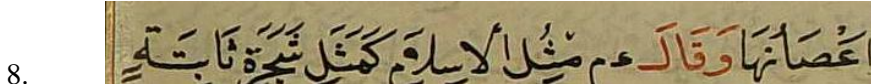 8. اَغْصَانُهَا وَقَالَ ءم مَثَلُ الْاِسْلَامِ كَمَثَلِ شَجَرَةٍ ثَابِتَةٍ